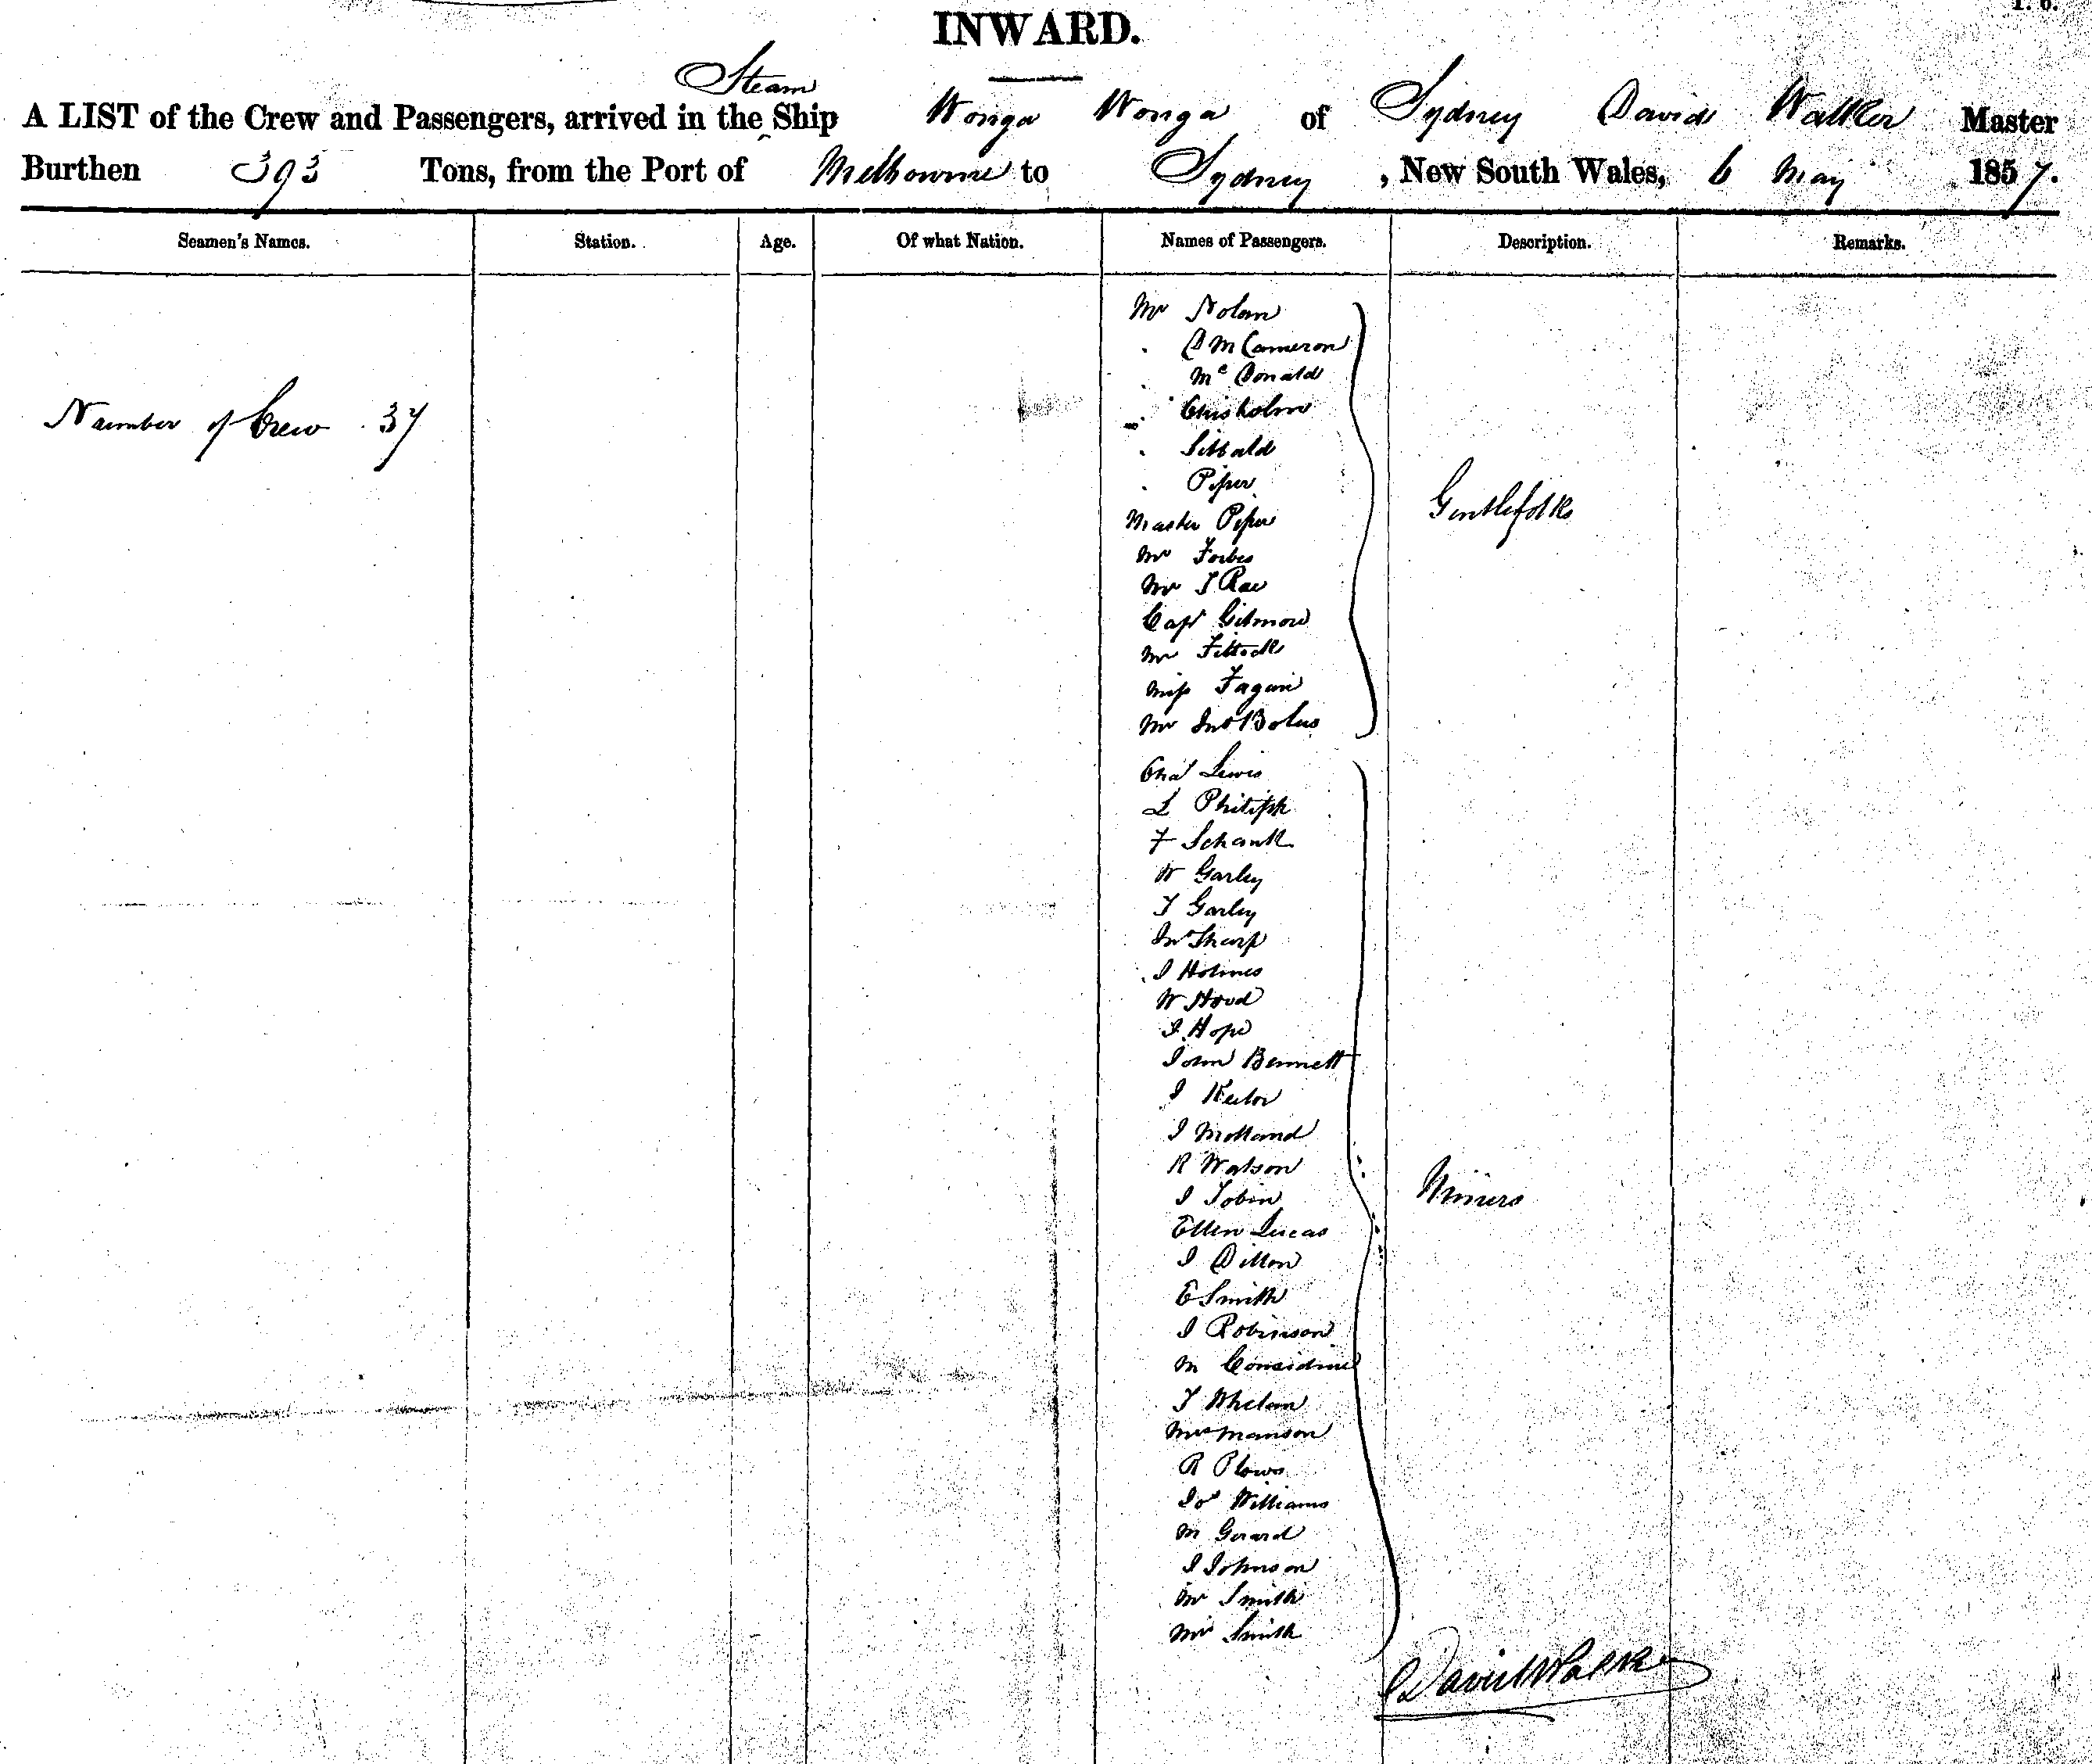 INWARD.
Steam
A LIST of the Crew and Passengers, arrived in the Ship Wonga Wonga of Sydney David Walker Master
Burthen 393 Tons, from the Port of Melbourne to Sydney, New South Wales, 6 May 1857.
Seamen's Names. Station. Age. Of what Nation. Names of Passengers. Description. Remarks.
Mr Nolan
. D M Cameron
. Mc Donald
. Chisholm
Number of Crew 37
. Sibbald
. Piper
Gentlefolks
Master Piper
Mr Forbes
Mr J Rae
Capt Gilmore
Mr Fittock
Miss Fagan
Mr Jno Bolus
Chas Lewis
L Philips
F Schank
W Garley
T Garley
Jno Sharp
J Holmes
W Hood
J Hope
John Bennett
J
J Molland
R Watson
Miners
J Tobin
Ellen Lucas
J Dillon
E Smith
J Robinson
M Considine
T Whelan
Mrs Manson
R Plows
Jos Williams
M Gerard
J Johnson
Mr Smith
Mrs Smith
David Walker